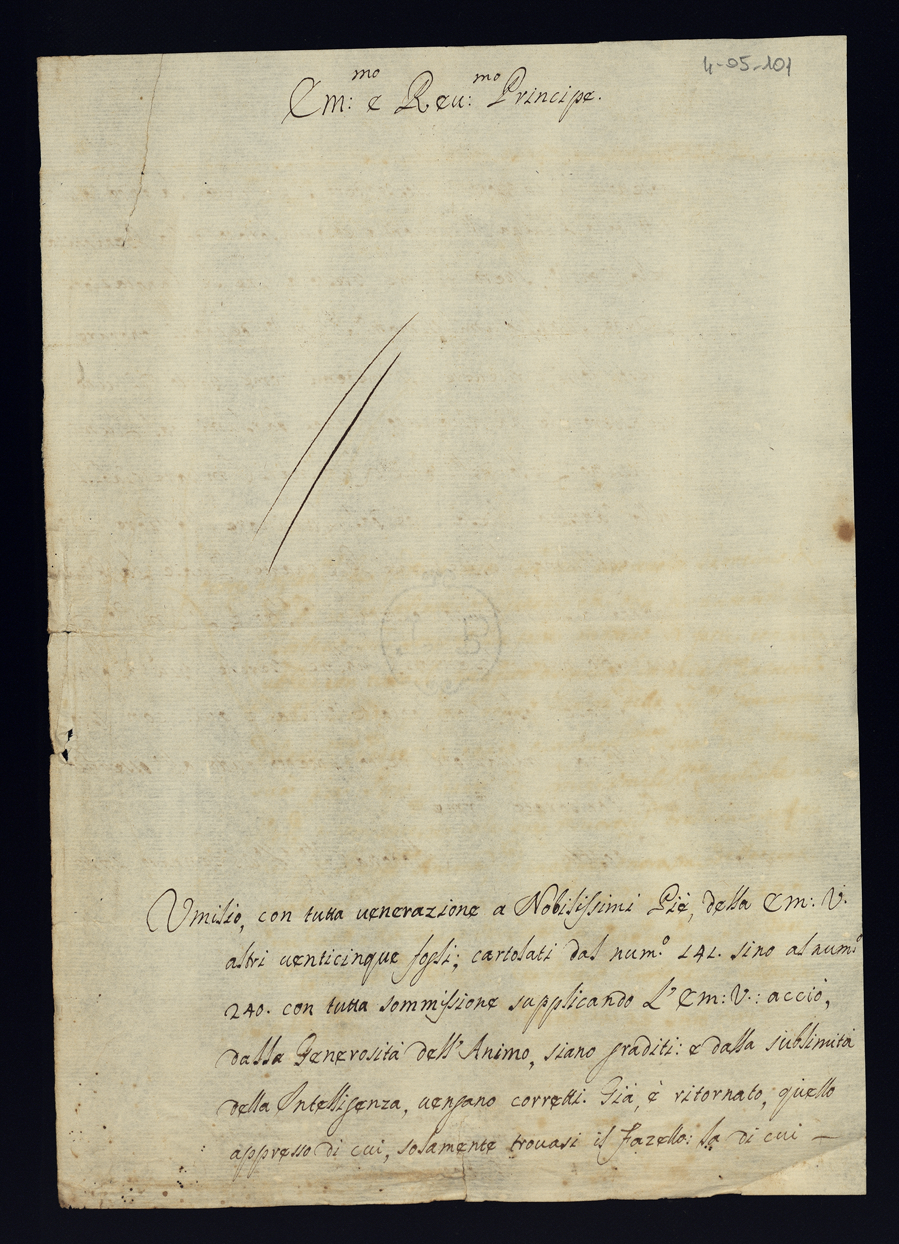 4-05-101
Em:mo e Reu:mo Principe.
Vmilio, con tutta uenerazione a Nobilissimi Piè, della Em: V.
altri uenticinque fogli; cartolati dal num.o 141. sino al num:o
240. con tutta sommissione supplicando L' Em: V.: acciò,
dalla Generosità dell' Animo, siano graditi: e dalla sublimità
della Intelligenza, uengano corretti. Già, è ritornato, quello
appresso di cui, solamente trouasi il fazello: la di cui —